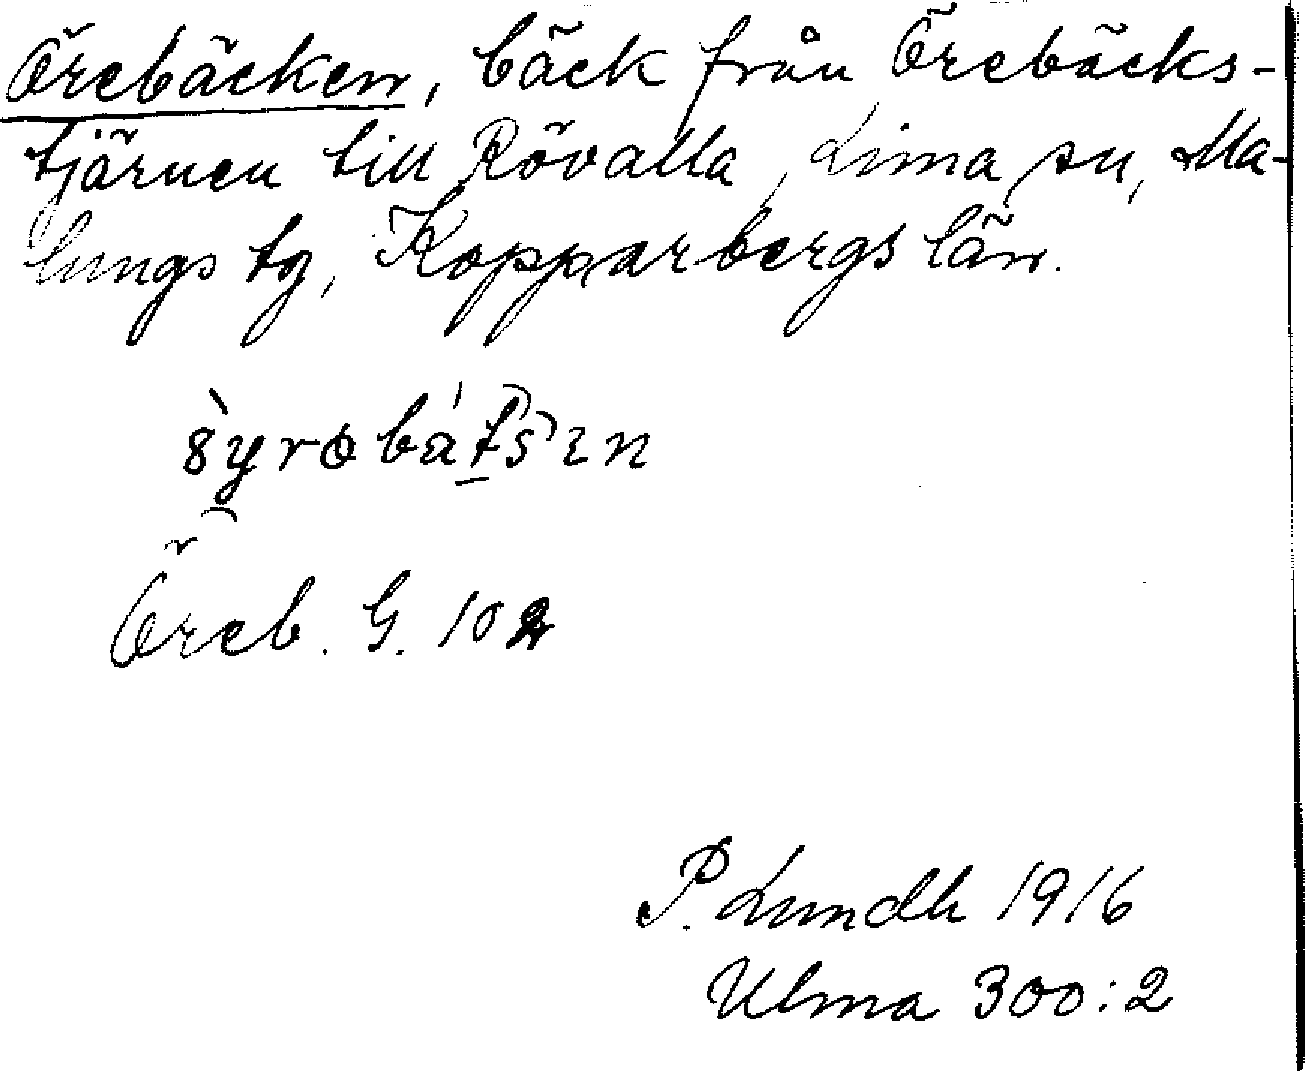 Örebäcken, bäck från Örebäcks-
tjärnen till Rövalla, Lima sn, Ma-
lungs tg, Kopparbergs län.
Öreb. G. 102
P. Lundh 1916
Ulma 300:2